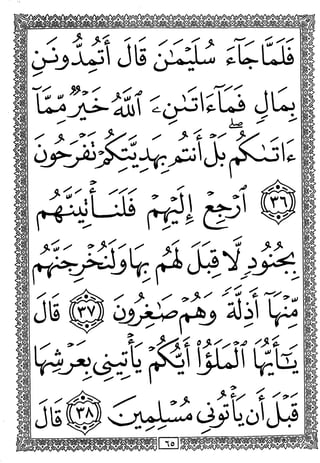 فَلَمَّا جَآءَ سُلَيْمَٰنَ قَالَ أَتُمِدُّونَنِ
بِمَالٍ فَمَآ ءَاتَىٰنِۦَ ٱللَّهُ خَيْرٌ مِّمَّآ
ءَاتَىٰكُم ۖ بَلْ أَنتُم بِهَدِيَّتِكُمْ تَفْرَحُونَ
٣٦ ٱرْجِعْ إِلَيْهِمْ فَلَنَأْتِيَنَّهُم
بِجُنُودٍ لَّا قِبَلَ لَهُم بِهَا وَلَنُخْرِجَنَّهُم
مِّنْهَآ أَذِلَّةً وَهُمْ صَٰغِرُونَ ٣٧ قَالَ
يَٰٓأَيُّهَا ٱلْمَلَؤُا۟ أَيُّكُمْ يَأْتِينِى بِعَرْشِهَا
قَبْلَ أَن يَأْتُونِى مُسْلِمِينَ ٣٨ قَالَ
٦٥